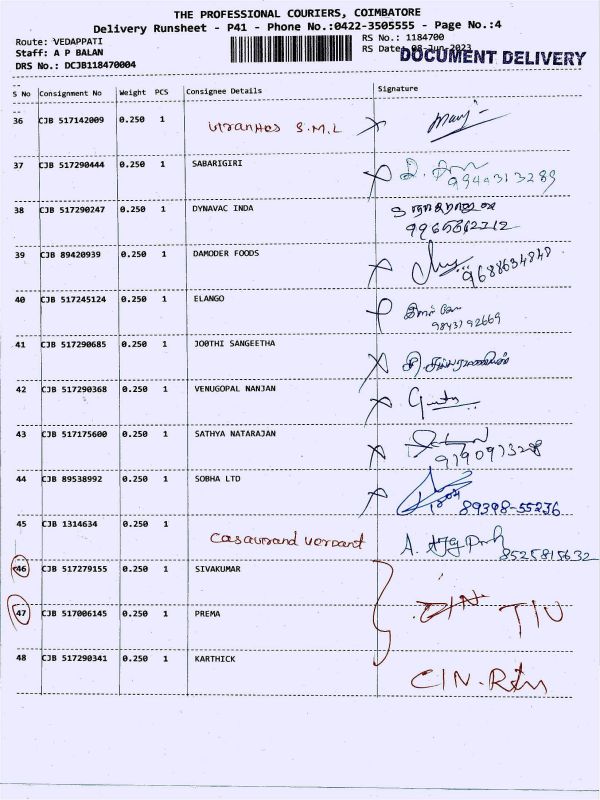 THE PROFESSIONAL COURIERS, COIMBATORE
Delivery Runsheet - P41 - Phone No.:0422-3505555 - Page No.:4
Route: VEDAPPATI
RS No.: 1184700
Staff: A P BALAN
RS Date: 08-Jun-2023
DOCUMENT DELIVERY
DRS No.: DCJB118470004
S No Consignment No Weight PCS Consignee Details Signature
36 CJB 517142009 0.250 1 S.M.L
37 CJB 517290444 0.250 1 SABARIGIRI
9944313289
38 CJB 517290247 0.250 1 DYNAVAC INDA
39 CJB 89420939 0.250 1 DAMODER FOODS
9688634848
40 CJB 517245124 0.250 1 ELANGO
9843192669
41 CJB 517290685 0.250 1 JOOTHI SANGEETHA
42 CJB 517290368 0.250 1 VENUGOPAL NANJAN
43 CJB 517175600 0.250 1 SATHYA NATARAJAN
44 CJB 89538992 0.250 1 SOBHA LTD
89398-55236
45 CJB 1314634 0.250 1
8525815632
46 CJB 517279155 0.250 1 SIVAKUMAR
47 CJB 517006145 0.250 1 PREMA
48 CJB 517290341 0.250 1 KARTHICK